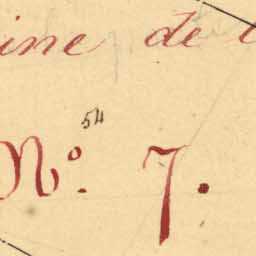 ine de
54
Nº. 7.